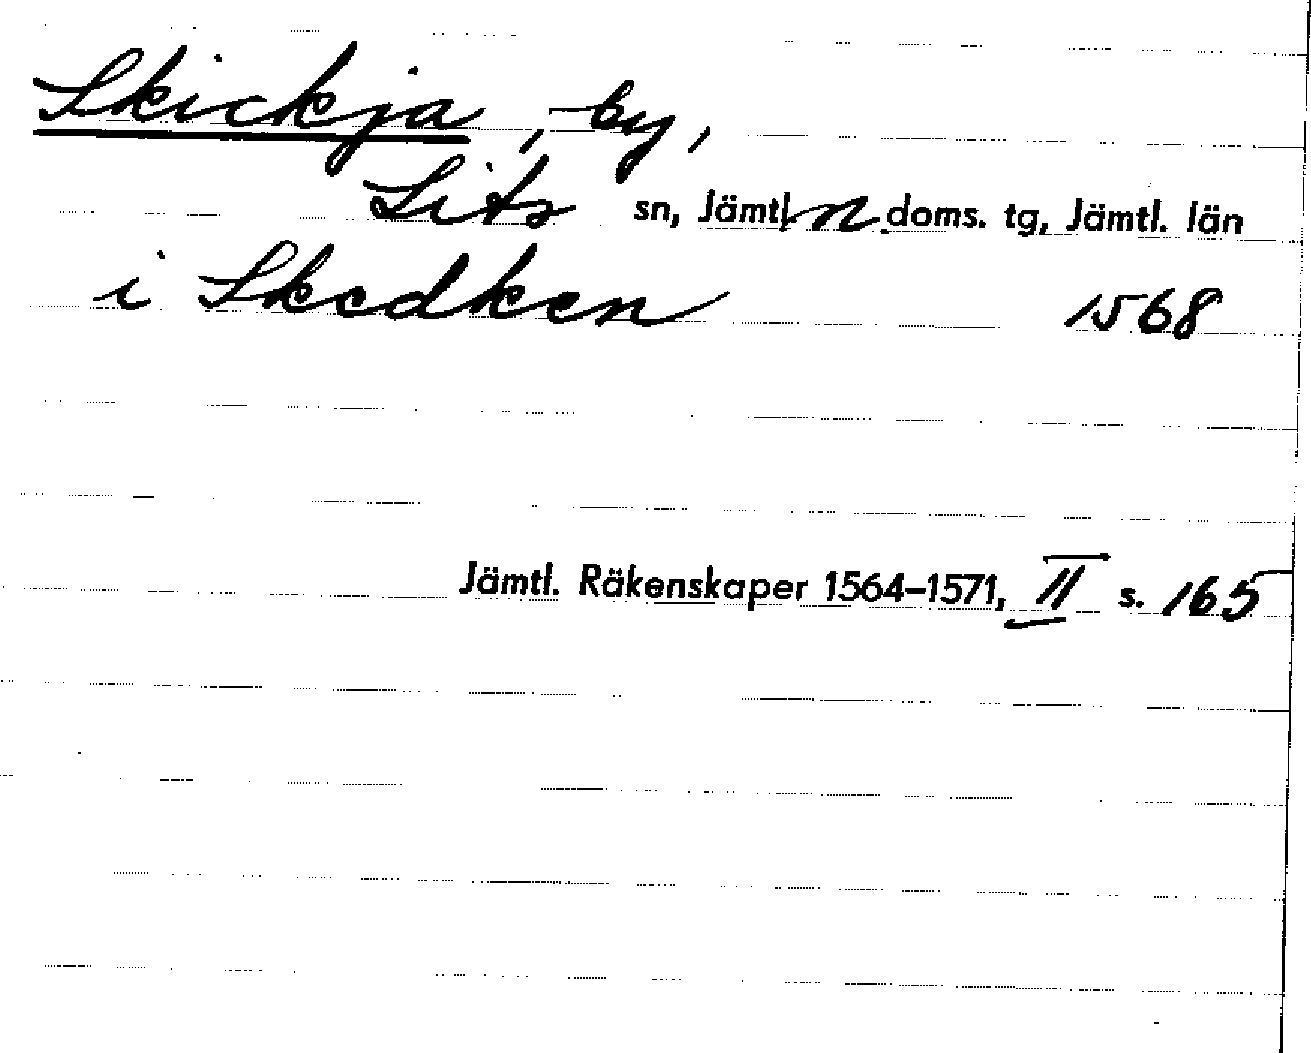 Skickja, by,
Lits sn, Jämtl. n. doms. tg, Jämtl. län
i Skedken 1568
Jämtl. Räkenskaper 1564–1571, II s. 165